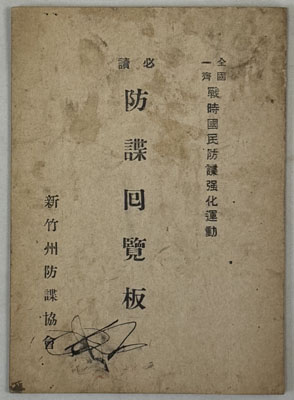 全國一齊 戰時國民防諜强化運動
必讀
防諜回覽板
新竹州防諜協會